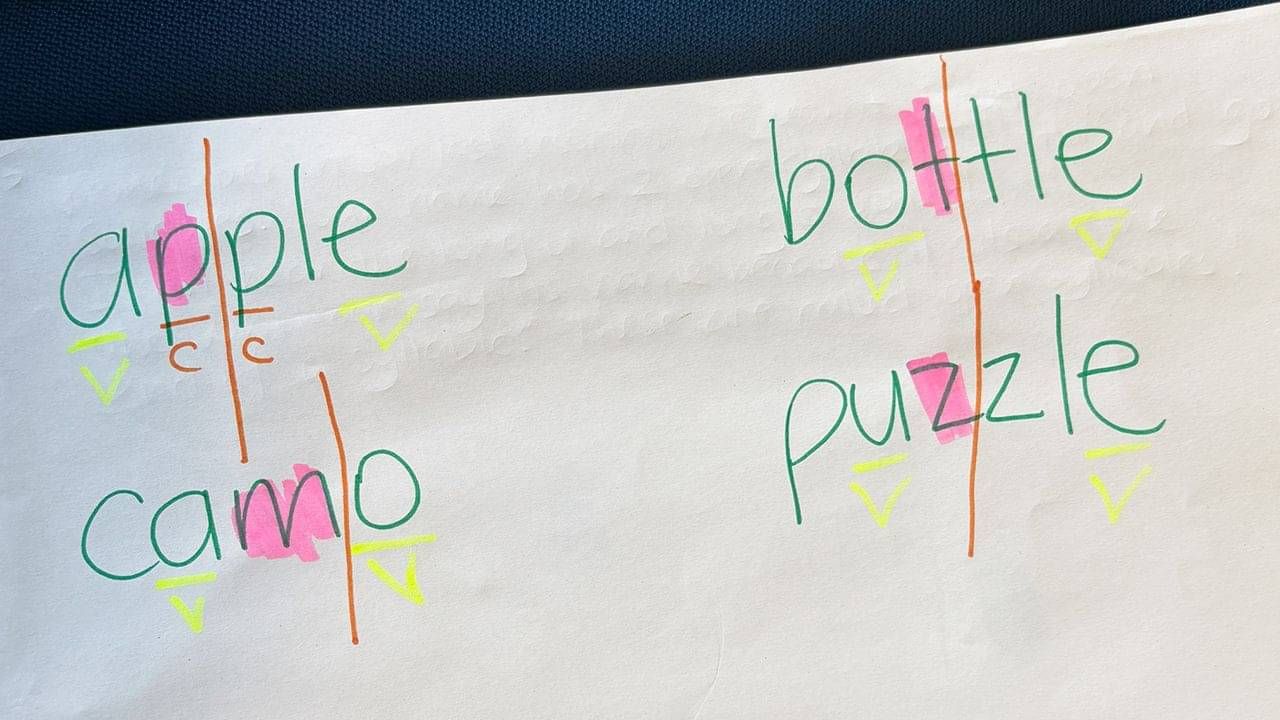 apple
V C C V
camo
V V
bottle
V V
puzzle
V V